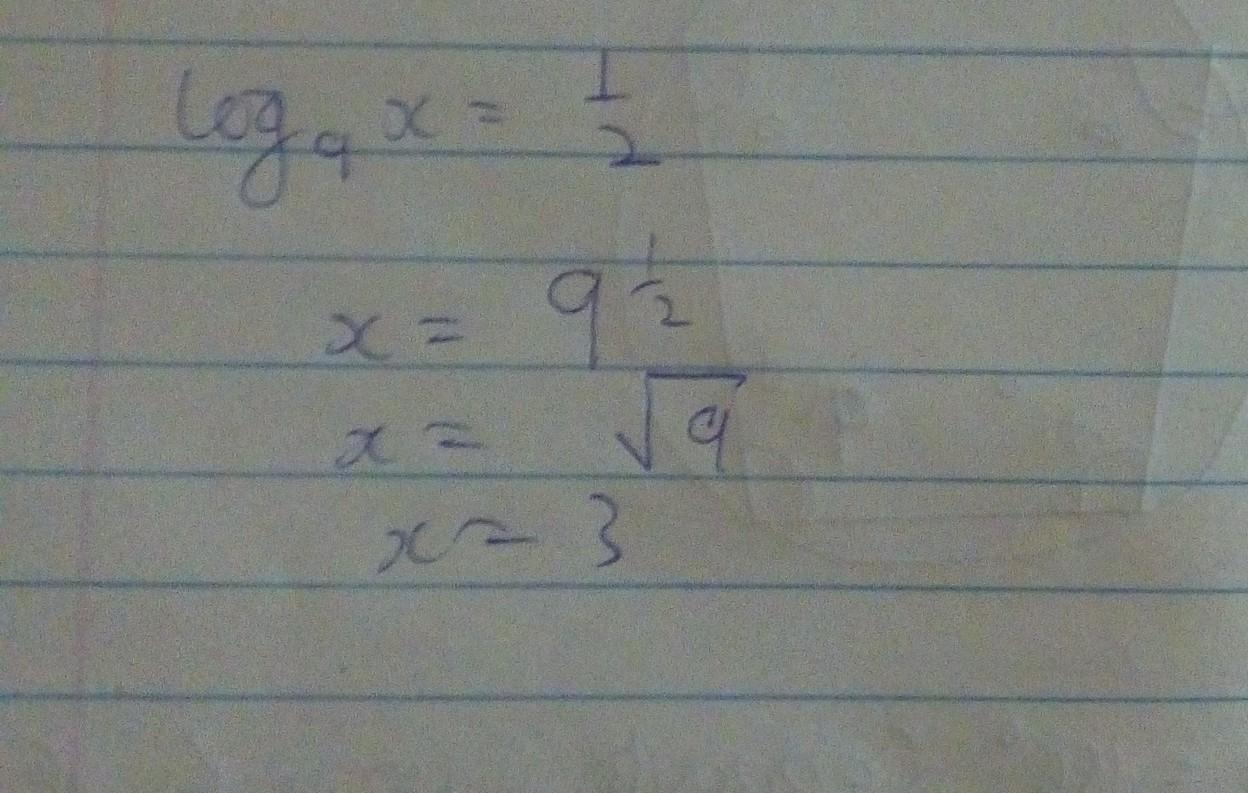 log₉ x = 1/2
x = 9^(1/2)
x = √9
x = 3